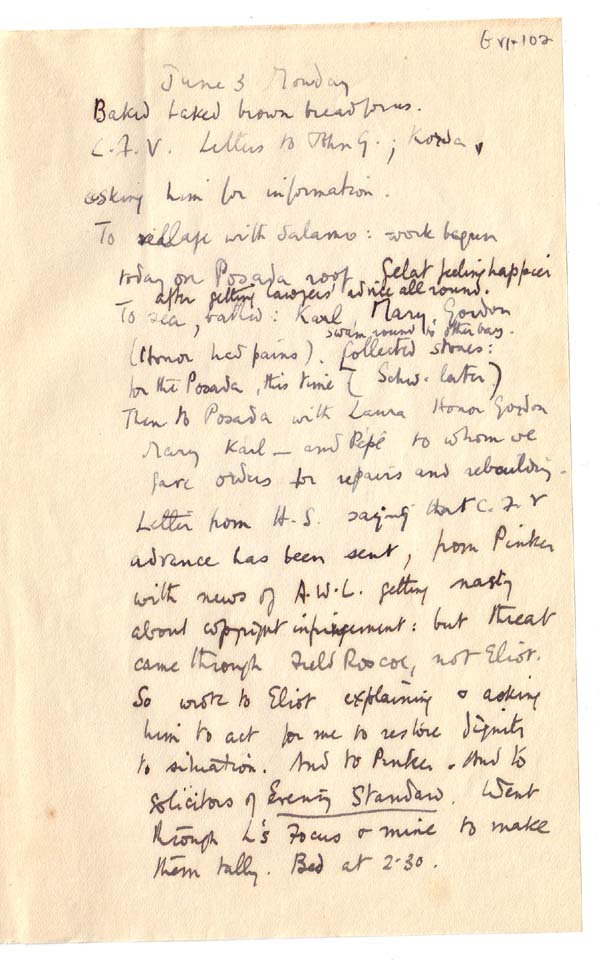 GVI-102
June 3 Monday
Baked baked brown bread forms.
C.I.V. Letters to John G.; Korda,
asking him for information.
To village with Salamo: work begun
today on Posada roof. Gelat feeling happier
after getting lawyers' advice all round.
To sea, bathed: Karl, Mary, Gordon
swam round to other bay.
(Honor had pains). Collected stones:
for the Posada, this time (Schw. later)
Then to Posada with Laura Honor Gordon
Mary Karl — and Pepé to whom we
gave orders for repairs and rebuilding.
Letter from H.S. saying that C.I.V
advance has been sent, from Pinker
with news of A.W.L. getting nasty
about copyright infringement: but threat
came through Field Roscoe, not Eliot.
So wrote to Eliot explaining & asking
him to act for me to restore dignity
to situation. And to Pinker. And to
solicitors of Evening Standard. Went
through L's Focus & mine to make
them tally. Bed at 2-30.